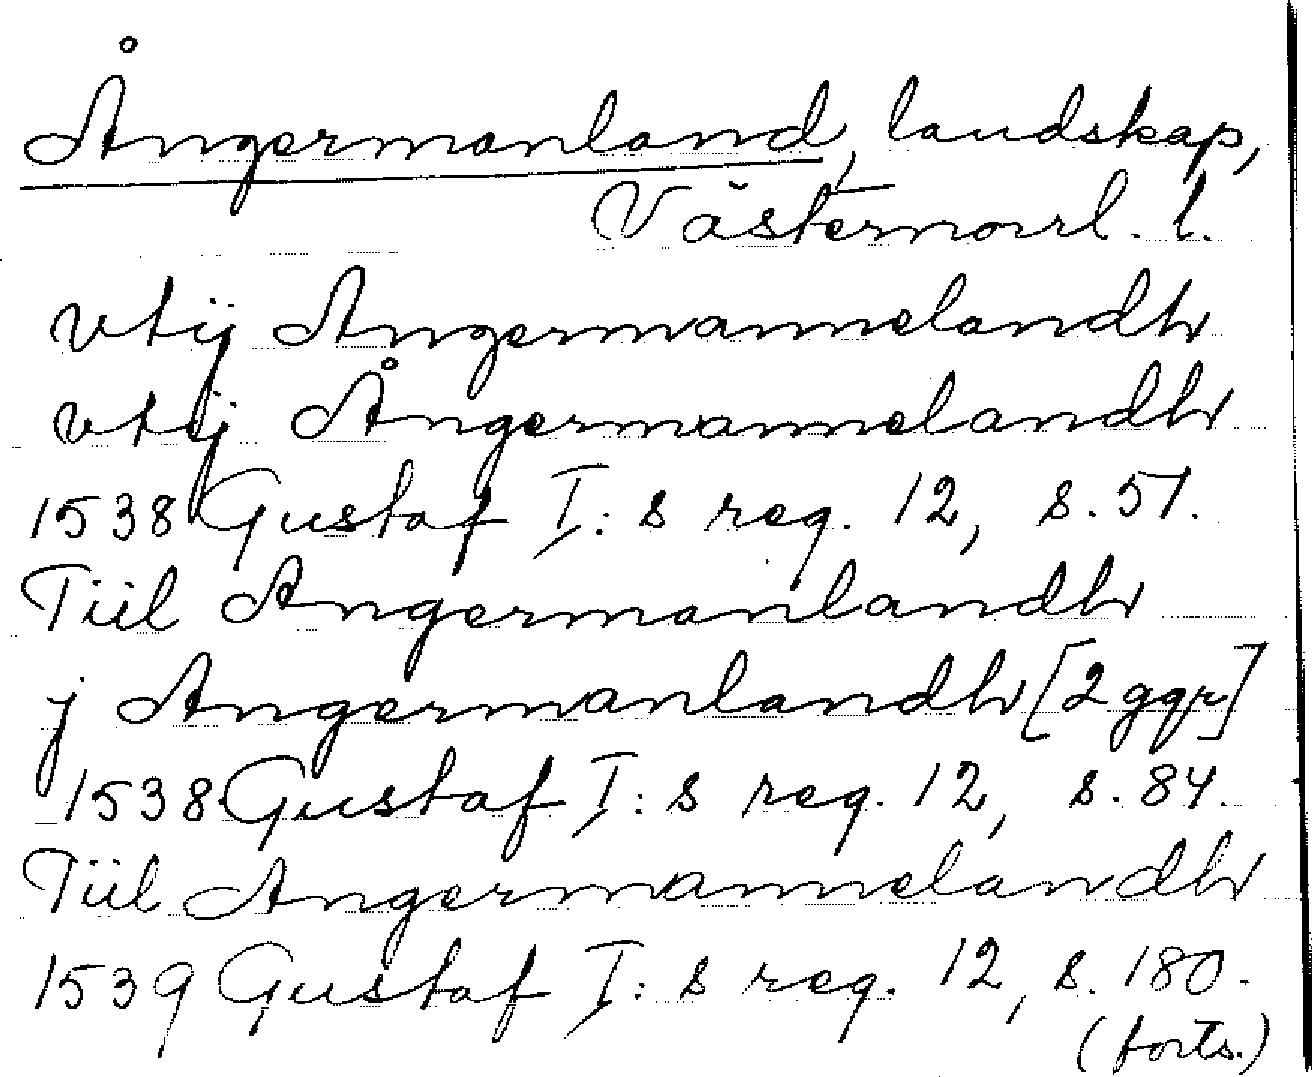 Ångermanland, landskap,
Västernorrl. l.
vtij Angermannelandh
vtij Ångermannelandh
1538 Gustaf I: s reg. 12, s. 57.
Tiil Angermanlandh
j Angermanlandh [2 ggr]
1538 Gustaf I: s reg. 12, s. 84.
Tiil Angermannelandh
1539 Gustaf I: s reg. 12, s. 180.
(forts.)